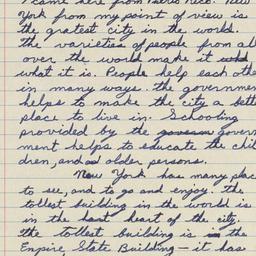 I came here from Puerto Rico. New
York from my point of view is
the gratest city in the world.
the varieties of people from all
over the world make it
what it is. People help each othe
in many ways. the governmen
helps to make the city a bett
place to live in. Schooling
provided by the govern
ment helps to educate the chil
dren, and older persons.
New York has many plac
to see, and to go and enjoy. the
tollest building in the world is
in the heart of the city.
the tollest building is the
Enpire State Building — it has